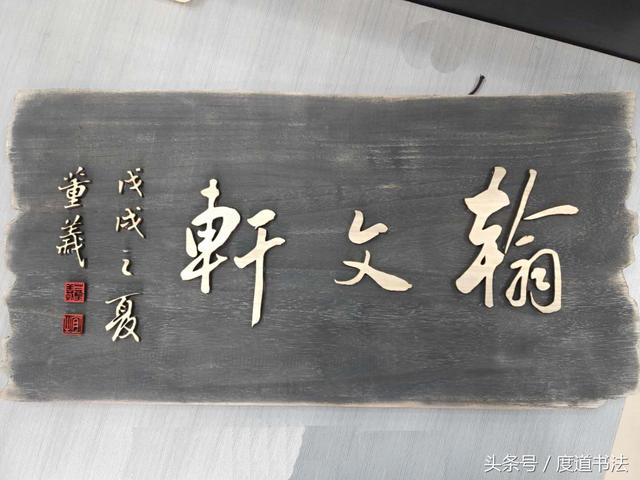 翰文軒
戊戌之夏
董義
头条号／度道书法